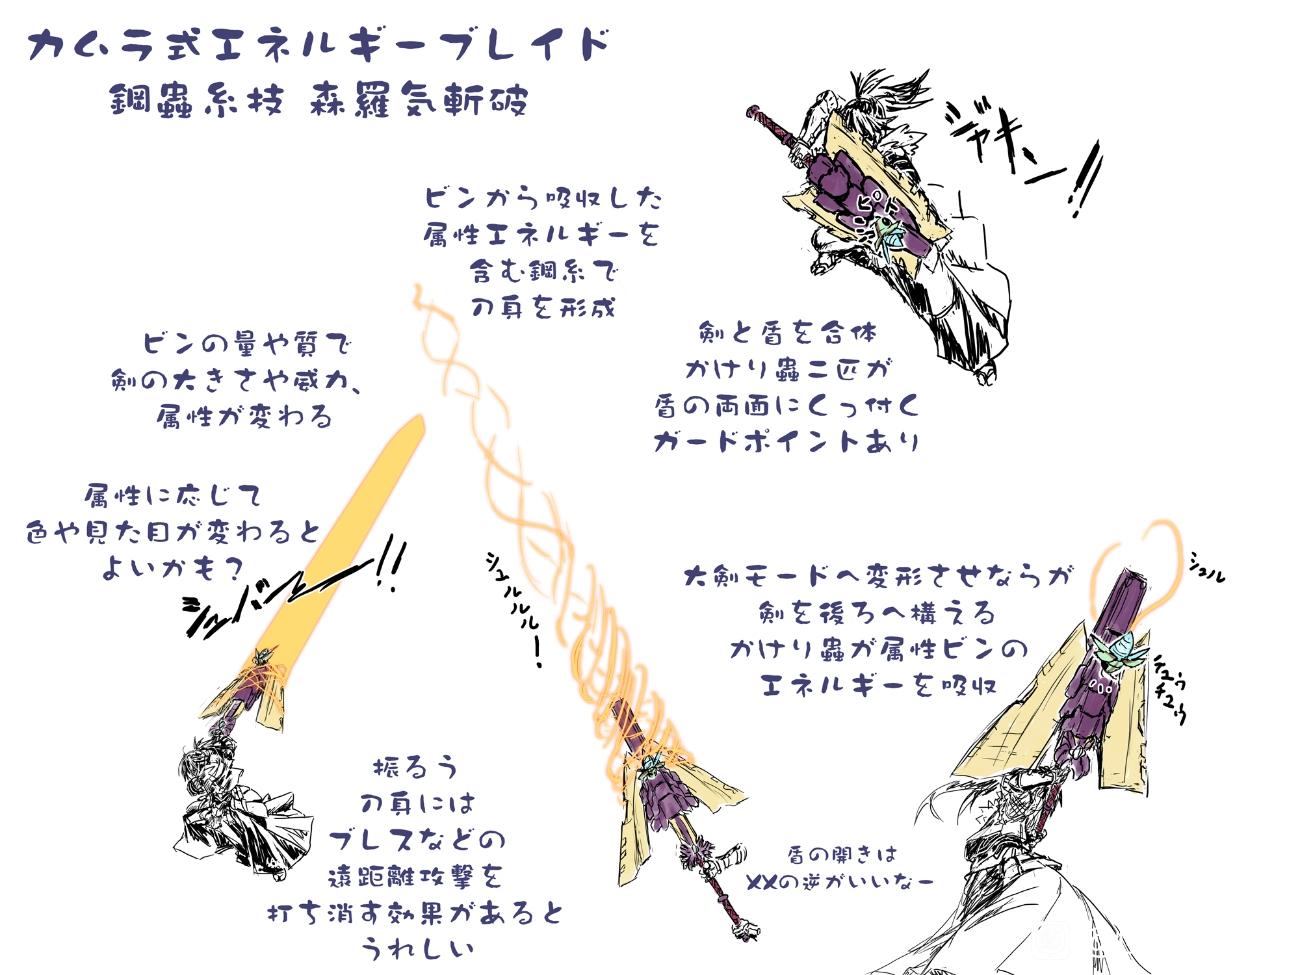 カムラ式エネルギーブレイド
鋼蟲糸技 森羅気斬破
ジャキン!!
ピト
剣と盾を合体
かけり蟲二匹が
盾の両面にくっ付く
ガードポイントあり
大剣モードへ変形させならが
剣を後ろへ構える
かけり蟲が属性ビンの
エネルギーを吸収
シュル
チュウ
チュウ
盾の開きは
XXの逆がいいなー
ビンから吸収した
属性エネルギーを
含む鋼糸で
刃身を形成
シュルルル!
ビンの量や質で
剣の大きさや威力、
属性が変わる
属性に応じて
色や見た目が変わると
よいかも?
シュバァン!!
振るう
刃身には
ブレスなどの
遠距離攻撃を
打ち消す効果があると
うれしい